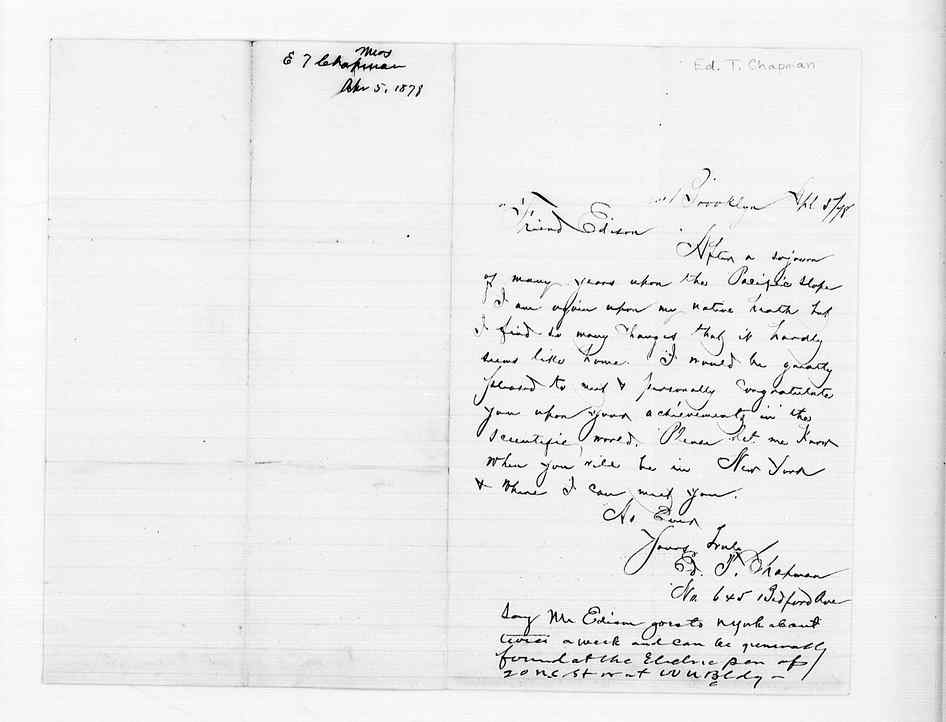 Miss
E T Chapman
Apr 5, 1878
Ed. T. Chapman
Brooklyn Apl 5/78
Friend Edison
After a sojourn
of many years upon the Pacific Slope
I am again upon my native heath but
I find so many changes that it hardly
seems like home. I would be greatly
pleased to meet & personally congratulate
you upon your achievements in the
Scientific world. Please let me know
when you will be in New York
& where I can meet you.
As Ever
Yours Truly
Ed. T. Chapman
No 645 Bedford Ave
Say Mr Edison goes to NYork about
twice a week and can be generally
found at the Electric pen of
20 New St or at WU Bldg -